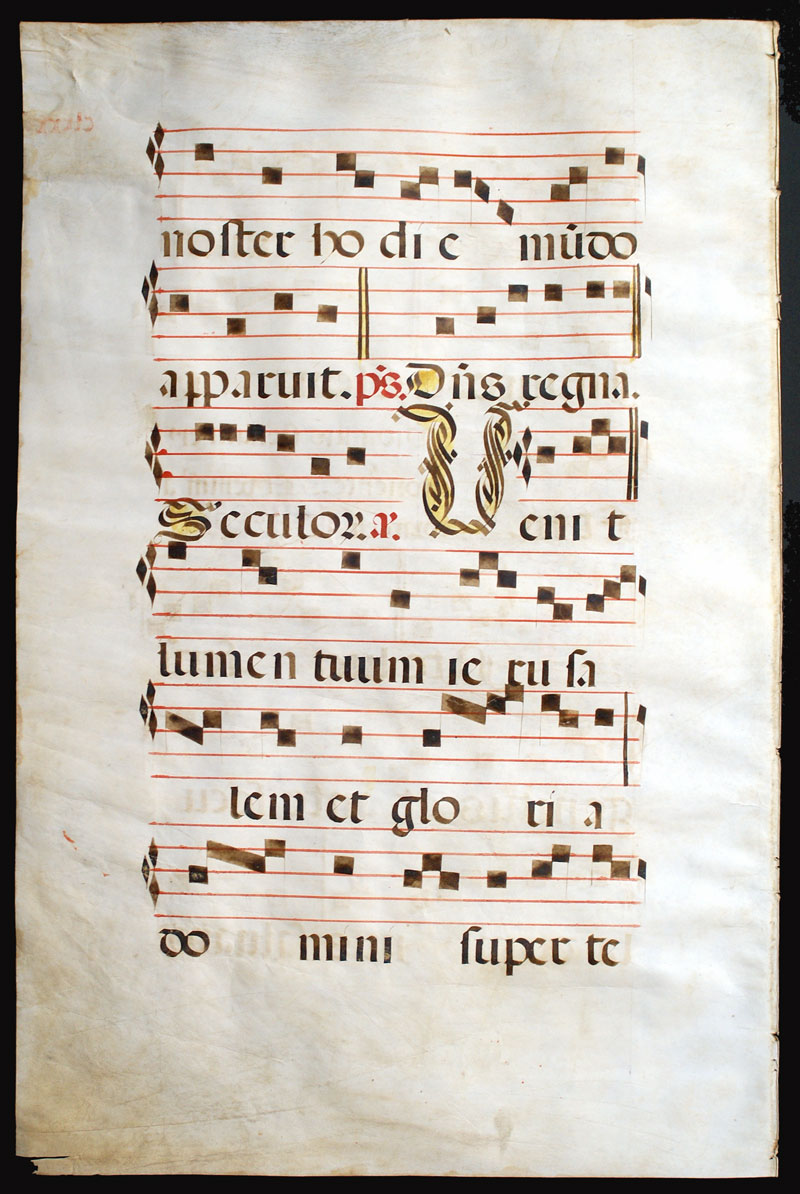 noster ho di e mūdo
apparuit. p̄s. Dn̄s regna.
Seculoꝝ. a. Veni t
lumen tuum ie ru sa
lem et glo ri a
do mini super te